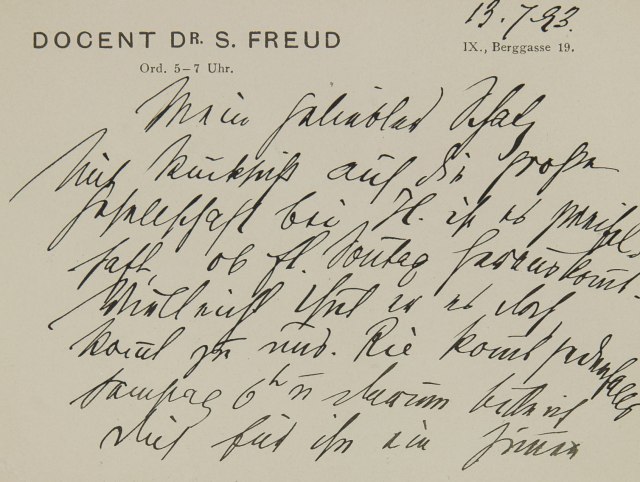 13.7.93.
DOCENT DR. S. FREUD
IX., Berggasse 19.
Ord. 5–7 Uhr.
Mein geliebter Schatz
Mit Rücksicht auf die große
Gesellschaft bei H. ist es zweifel-
haft, ob Fl. Sonntag herauskomt.
Vielleicht thut er es doch
komt zu uns. Rie komt jedenfalls
Samstag 6h u darum bitte ich
Dich für ihn ein Zimer